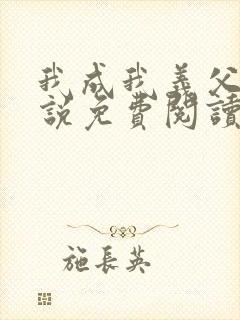 我成我義父
說免費閱讀
施長英